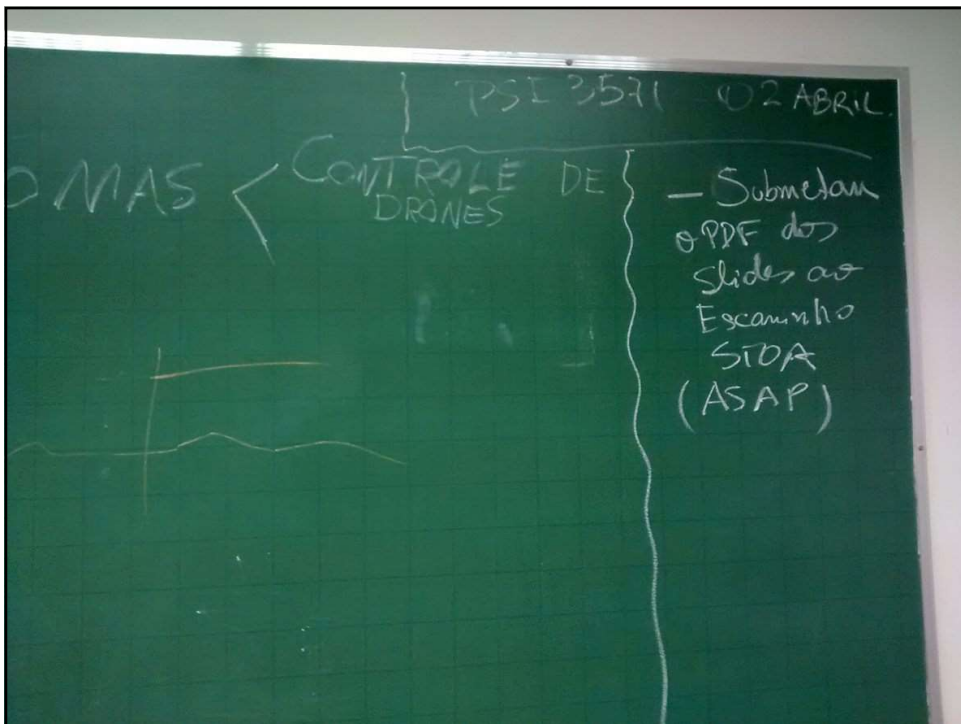 PSI 3571 - 02 ABRIL.
OMAS < CONTROLE DE
DRONES
- Submetam
o PDF dos
Slides ao
Escaninho
STOA
(ASAP)